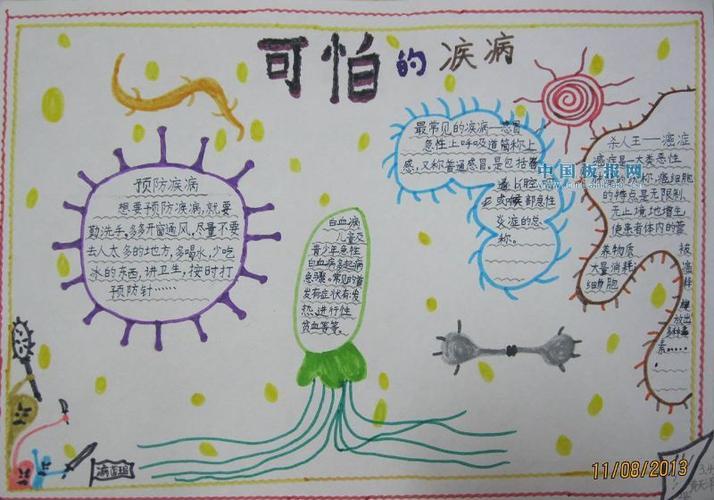 可怕的疾病
预防疾病
想要预防疾病,就要
勤洗手,多多开窗通风,尽量不要
去人太多的地方,多喝水,少吃
冰的东西,讲卫生,按时打
预防针……
白血病
儿童及
青少年急性
白血病多起病
急骤。常见的首
发有症状有:发
热、进行性
贫血等等。
最常见的疾病——感冒
急性上呼吸道简称上
感,又称普通感冒。是包括鼻
部急性
炎症的总
称。
杀人王——癌症
癌症是一大类恶性
癌细胞
的特点是无限制、
无止境地增生,
使患者体内的营
养物质被
大量消耗;
放出
素……
中国板报网
11/08/2013